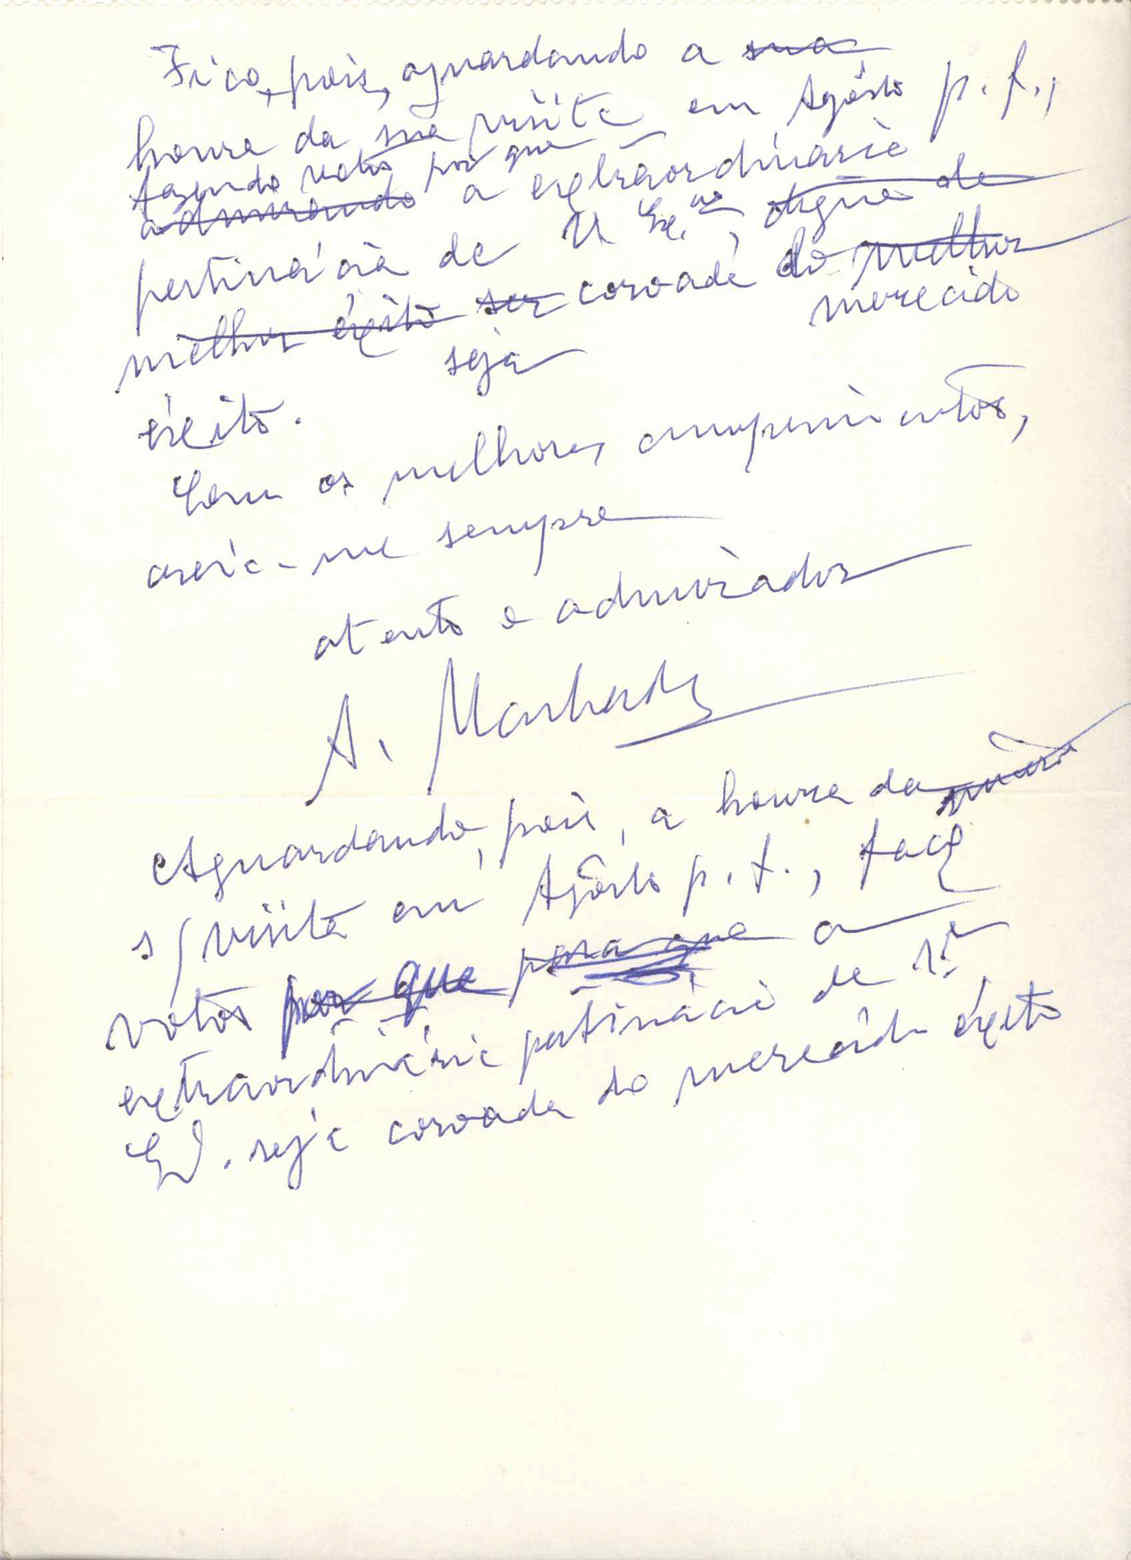 Fico, pois, aguardando a sua
honra da sua visita em Agôsto p. f.,
fazendo votos por que
admirando a extraordinária
pertinácia de V. Ex.ª, digna de
melhor êxito ser coroada do melhor
seja merecido
êxito.
Com os melhores cumprimentos,
creia-me sempre
atento e admirador
A. Machado
Aguardando, pois, a honra da
s/ visita em Agôsto p. f., faço
votos por que para que a
extraordinária pertinácia de V.
Ex. seja coroada do merecido êxito